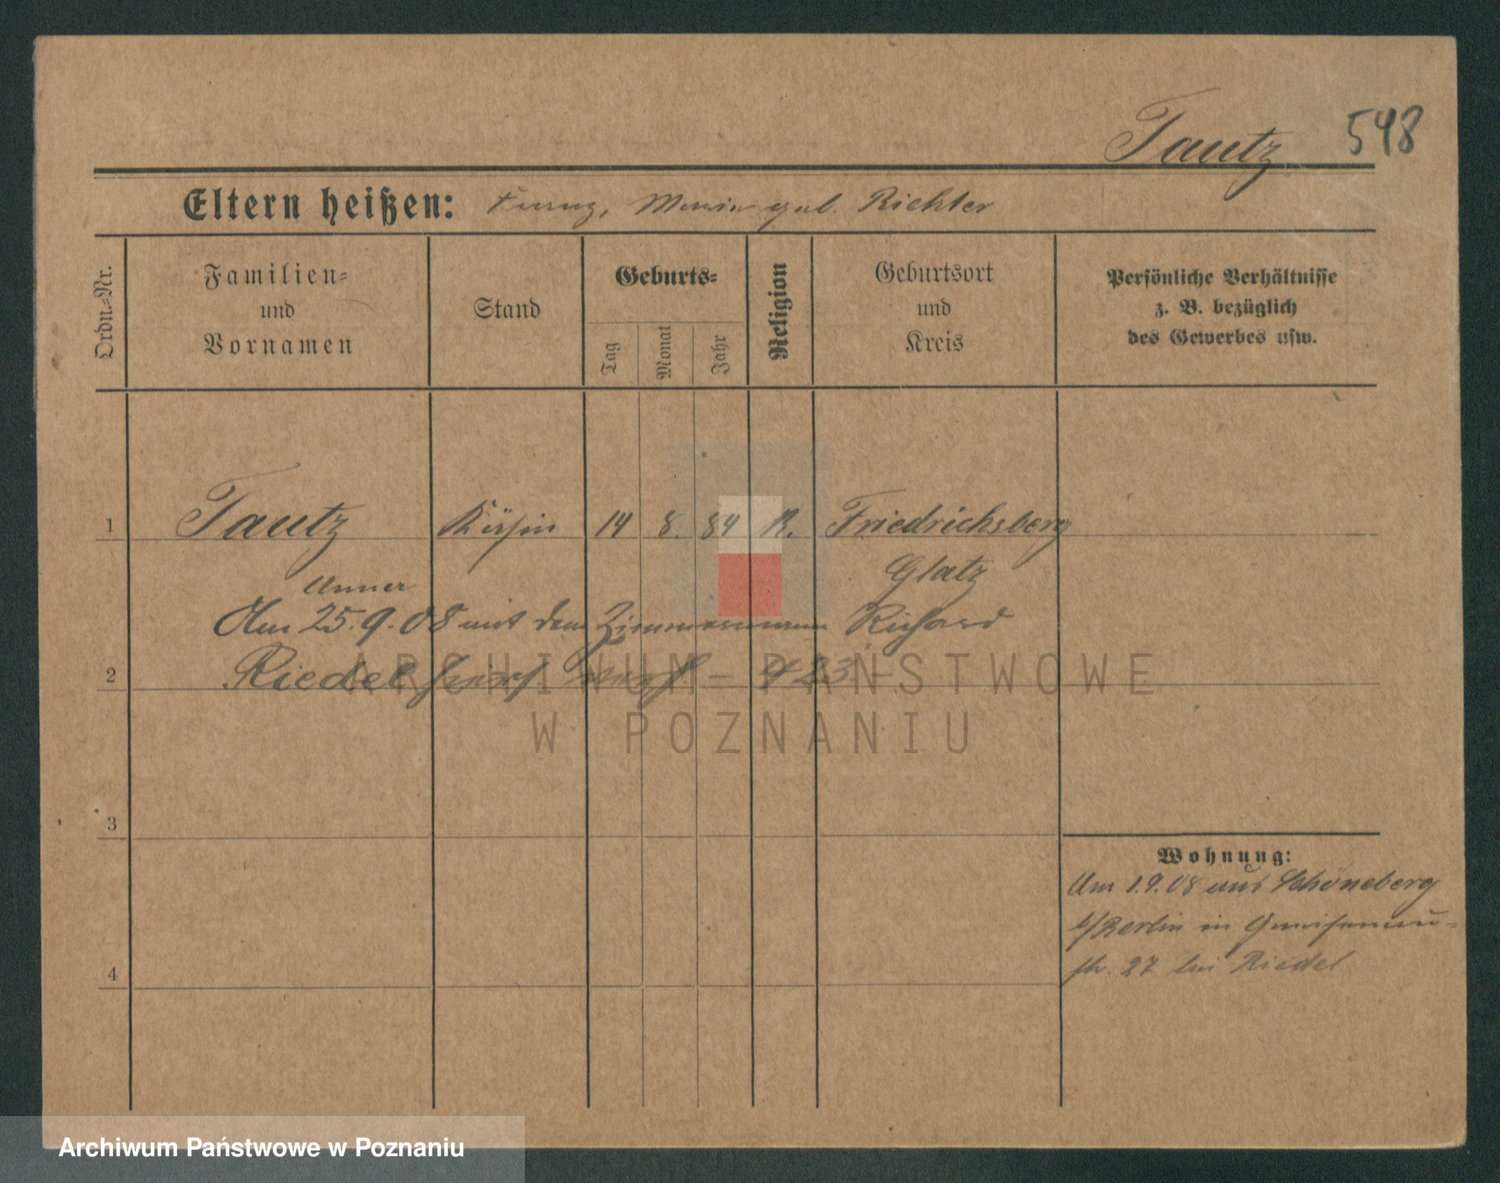 Tautz 548
Eltern heißen: Franz, Maria geb. Richter
Ordn.-Nr.
Familien-
und
Vornamen
Stand
Geburts-
Tag
Monat
Jahr
Religion
Geburtsort
und
Kreis
Persönliche Verhältnisse
z. B. bezüglich
des Gewerbes usw.
1 Tautz Köchin 14 8. 84 R. Friedrichsberg
Glatz
Anna
Am 25.9.08 mit dem Zimmermann Richard
2 Riedel 423
3
4
Wohnung:
Am 1.9.08 aus Schöneberg
b/Berlin in Gneisenau-
str. 27 bei Riedel
ARCHIWUM PAŃSTWOWE
W POZNANIU
Archiwum Państwowe w Poznaniu